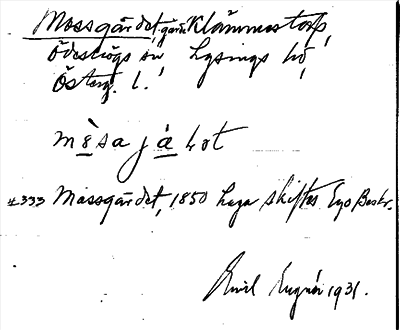 Mossgärdet, gård Klämmestorp,
Ödeshögs sn Lysings hd,
Österg. l.
mòsa jạ̀ḷot
#333 Mossgärdet, 1850 laga skiftes Ego Beskr.
Emil 1931.